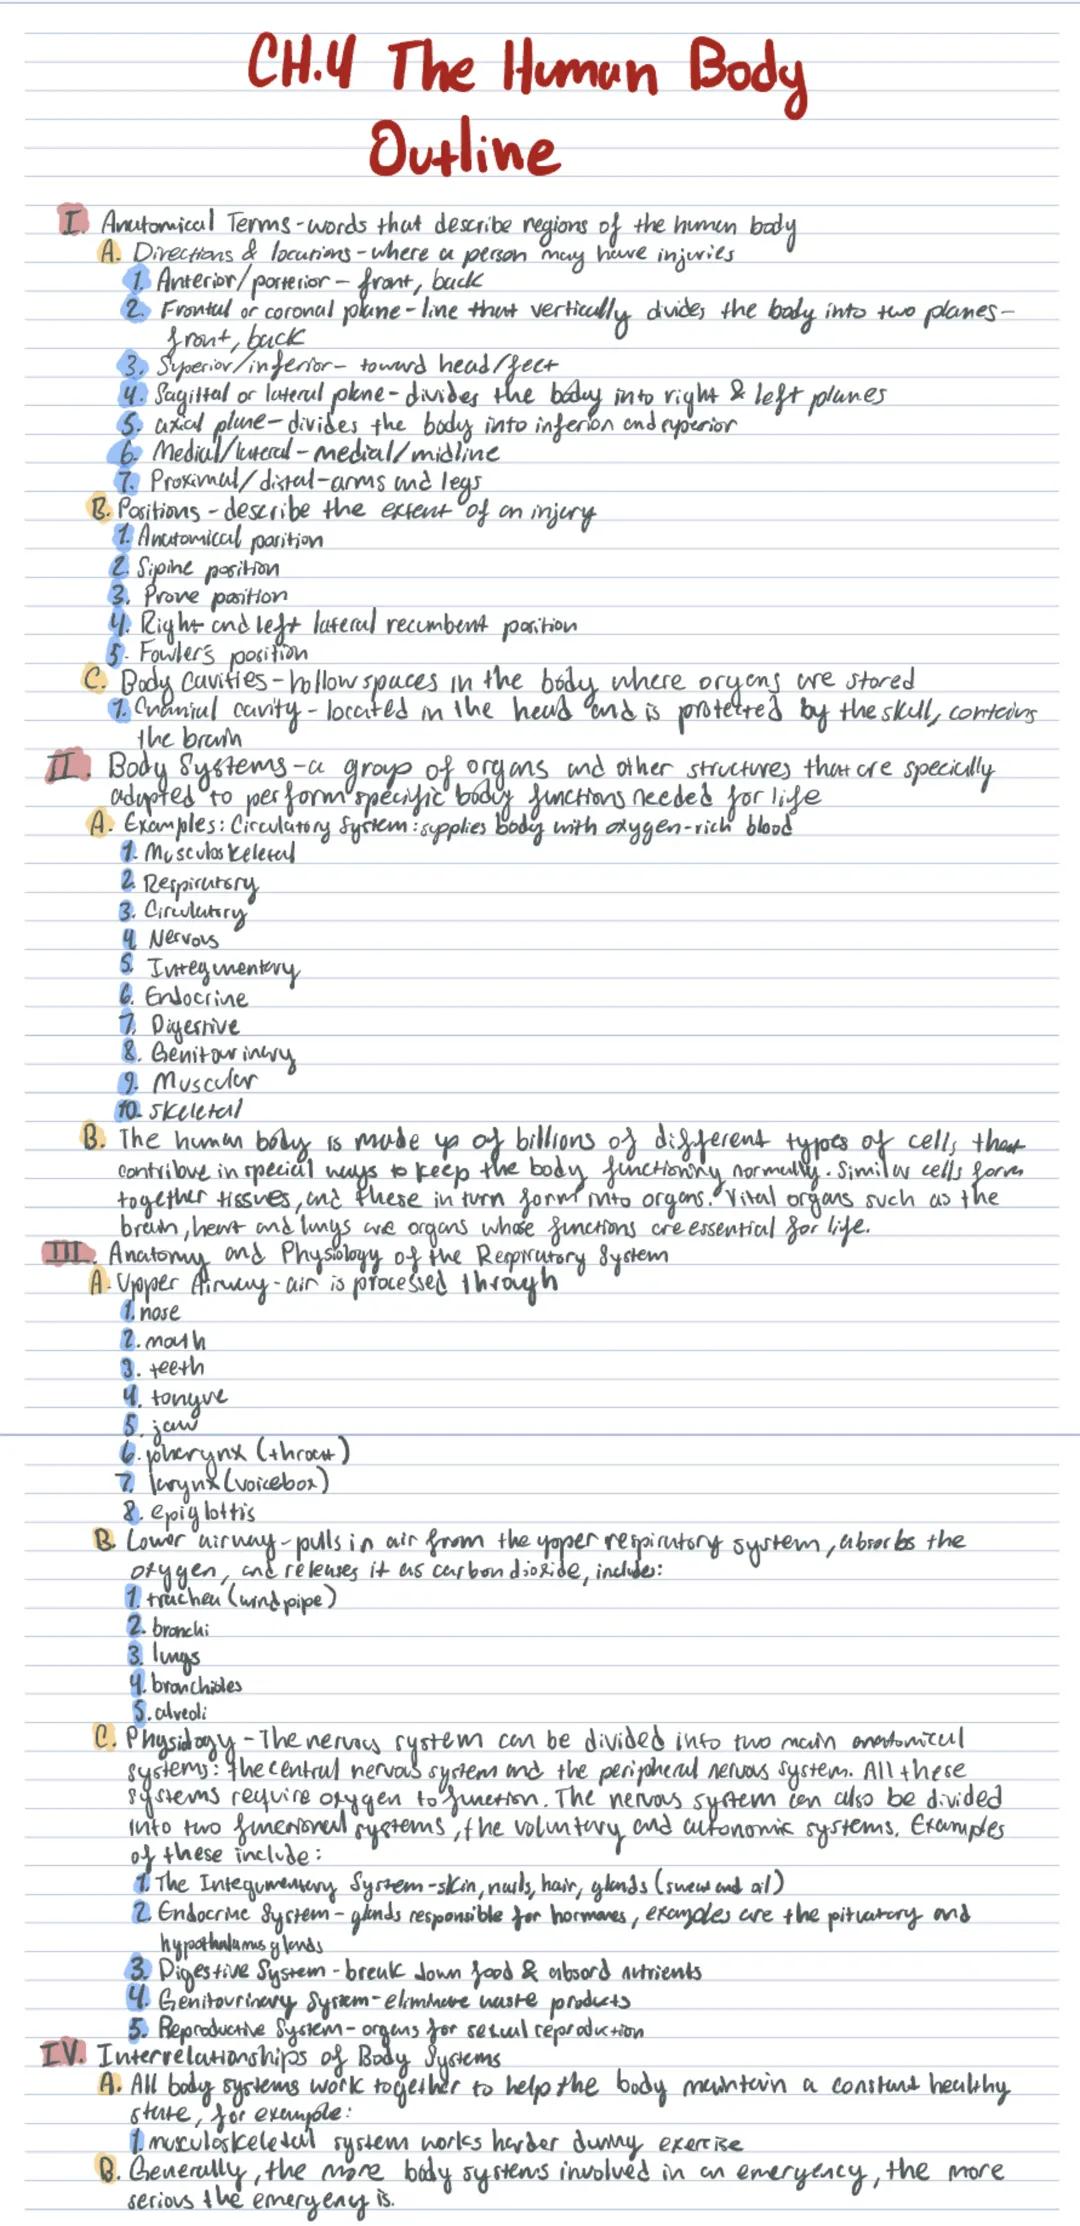 CH.4 The Human Body
Outline
I. Anatomical Terms - words that describe regions of the human body
A. Directions & locations - where a person may have injuries
1. Anterior/posterior - front, back
2. Frontal or coronal plane - line that vertically divides the body into two planes -
front, back
3. Superior/inferior - toward head/feet
4. Sagittal or lateral plane - divides the body into right & left planes
5. axial plane - divides the body into inferior and superior
6. Medial/lateral - medial/midline
7. Proximal/distal - arms and legs
B. Positions - describe the extent of an injury
1. Anatomical position
2. Sipine position
3. Prove position
4. Right and left lateral recumbent position
5. Fowler's position
C. Body Cavities - hollow spaces in the body where organs are stored
1. Cranial cavity - located in the head and is protected by the skull, contains
the brain
II. Body Systems - a group of organs and other structures that are specially
adapted to perform specific body functions needed for life
A. Examples: Circulatory System: supplies body with oxygen-rich blood
1. Musculoskeletal
2. Respiratory
3. Circulatory
4. Nervous
5. Integumentary
6. Endocrine
7. Digestive
8. Genitourinary
9. Muscular
10. skeletal
B. The human body is made up of billions of different types of cells that
contribue in special ways to keep the body functioning normally. Similar cells form
together tissues, and these in turn form into organs. Vital organs such as the
brain, heart and lungs are organs whose functions are essential for life.
III. Anatomy and Physiology of the Respiratory System
A. Upper Airway - air is processed through
1. nose
2. mouth
3. teeth
4. tongue
5. jaw
6. pharynx (throat)
7. larynx (voicebox)
8. epiglottis
B. Lower airway - pulls in air from the upper respiratory system, absorbs the
oxygen, and releases it as carbon dioxide, includes:
1. trachea (windpipe)
2. bronchi
3. lungs
4. bronchioles
5. alveoli
C. Physiology - The nervous system can be divided into two main anatomical
systems: the central nervous system and the peripheral nervous system. All these
systems require oxygen to function. The nervous system can also be divided
into two functional systems, the voluntary and autonomic systems. Examples
of these include:
1. The Integumentary System - skin, nails, hair, glands (sweat and oil)
2. Endocrine System - glands responsible for hormones, examples are the pituatary and
hypothalamus glands
3. Digestive System - break down food & absord nutrients
4. Genitourinary System - eliminate waste products
5. Reproductive System - organs for sexual reproduction
IV. Interrelationships of Body Systems
A. All body systems work together to help the body maintain a constant healthy
state, for example:
1. musculoskeletal system works harder during exercise
B. Generally, the more body systems involved in an emergency, the more
serious the emergency is.